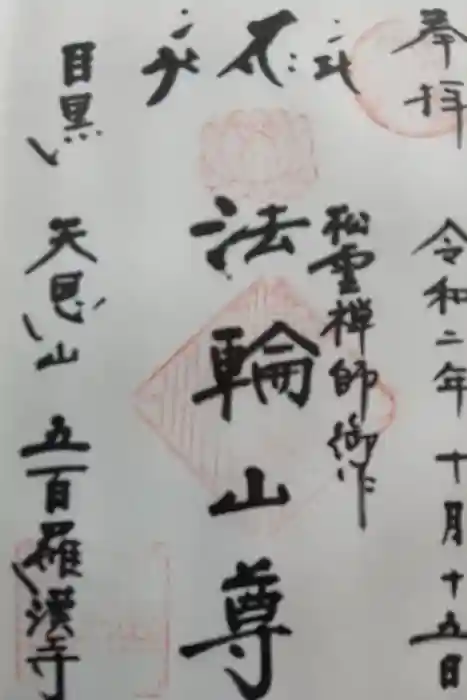 奉拝
令和二年十月十五日
松雲禅師御作
法輪山尊
目黒
天恩山 五百羅漢寺